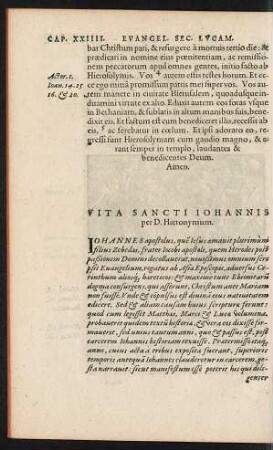 CAP. XXIIII. EVANGEL. SEC. LVCAM.
bat Christum pati, & resurgere à mortuis tertio die: &
prædicari in nomine eius pœnitentiam, ac remissio-
nem peccatorum apud omnes gentes, initio facto ab
Actor.1. Hierosolymis. Vos autem estis testes horum. Et ec-
Ioan.14.15 ce ego mittā promissum patris mei super vos. Vos
16.&20. autem manete in ciuitate Hierusalem, quoadusque in-
duamini virtute ex alto. Eduxit autem eos foras vsque
in Bethaniam, & sublatis in altum manibus suis, bene-
dixit eis. Et factum est cum benediceret illis, recessit ab
eis, ac ferebatur in cœlum. Et ipsi adorato eo, re-
gressi sunt Hierosolymam cum gaudio magno, & e-
rant semper in templo, laudantes &
benedicentes Deum.
Amen.
VITA SANCTI IOHANNIS
per D. Hieronymum.
IOHANNES Apostolus, quē Iesus amauit plurimùm
filius Zebedæi, frater Iacobi apostoli, quem Herodes post
passionem Domini decollauerat, nouissimus omnium scri-
psit Euangelium, rogatus ab Asiæ Episcopis, aduersus Ce-
rinthum aliosq́, hæreticos: & maximè tunc Ebionitarū
dogma consurgens, qui asserunt, Christum ante Mariam
non fuisse. Vnde & compulsus est diuinā eius natiuitatem
edicere. Sed & aliam causam huius scripturæ ferunt:
quòd cum legisset Matthæi, Marci & Lucæ volumina,
probauerit quidem textū historiæ, & vera eos dixisse fir-
mauerit, sed vnius tantùm anni, quo & passus est, post
carcerem Iohannis historiam texuisse. Prætermisso itaq́
anno, cuius acta à tribus exposita fuerant, superioris
temporis antequā Iohannes clauderetur in carcerem, ge-
sta narrauit: sicut manifestum esse poterit his qui dili-
genter